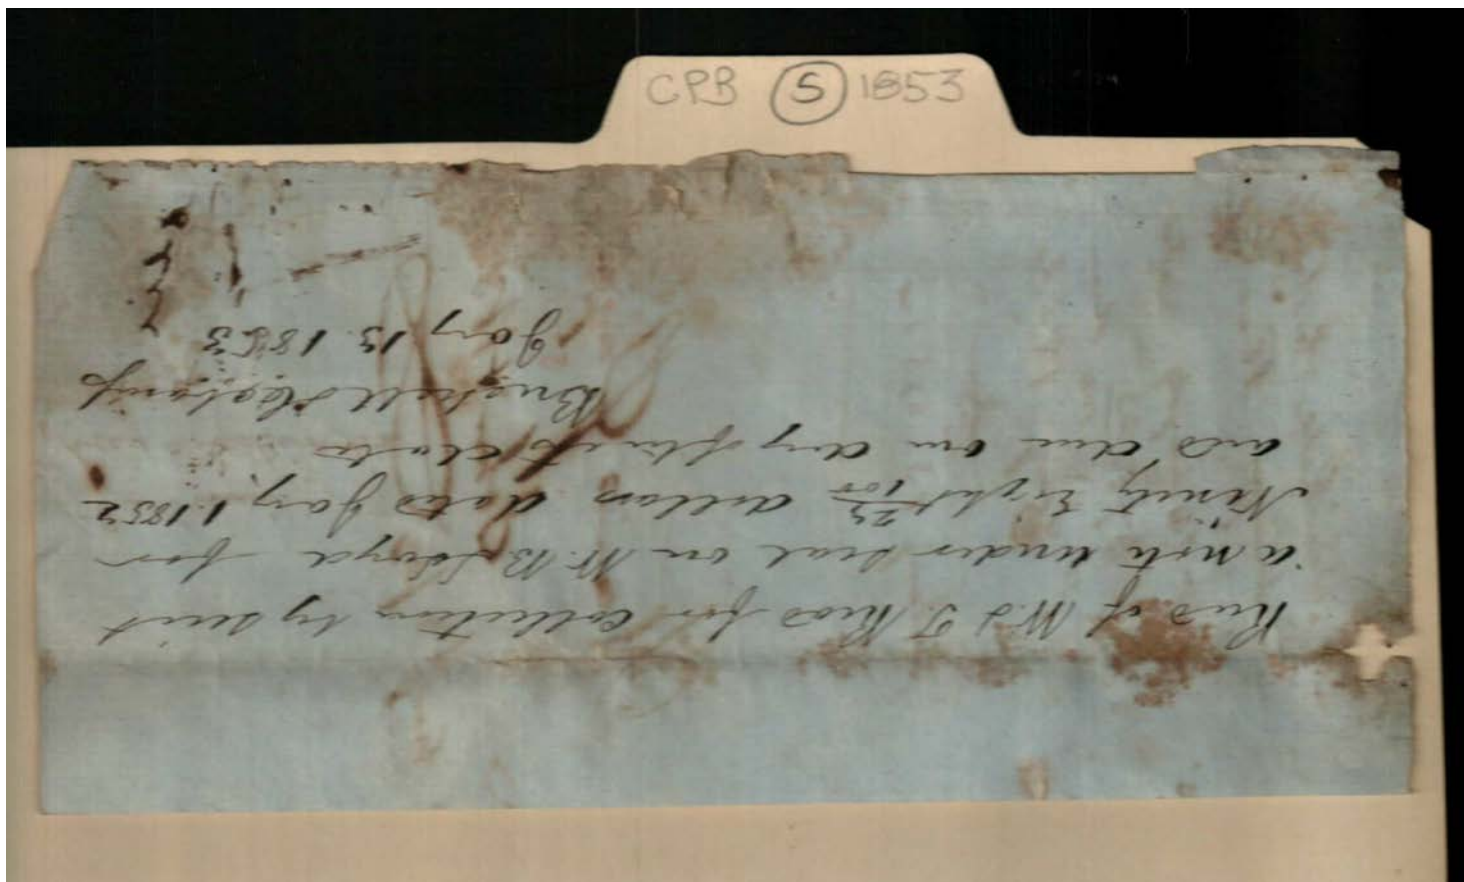 CPB S 1853
Recd of W & T. Reid for collection by suit
a note under seal on W. B. Lloyd for
Ninety Eight 29/100 dollars dated Jany. 1. 1852
and due on day first date
Jany 13. 1853